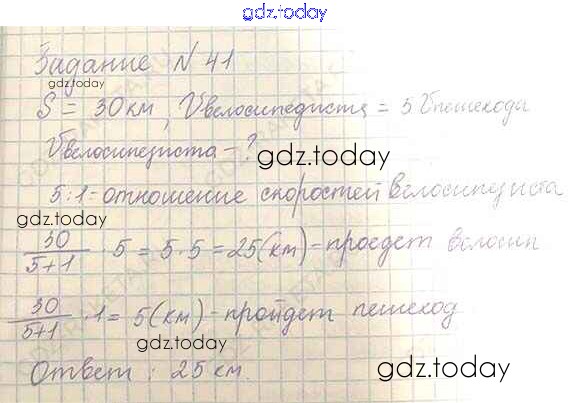 gdz.today
Задание N 41
gdz.today
S = 30км, Vвелосипедиста = 5 Vпешехода
Vвелосипедиста - ?
gdz.today
5:1 - отношение скоростей велосипедиста
gdz.today
30/5+1 · 5 = 5 · 5 = 25(км) - проедет велосип
30/5+1 · 1 = 5(км) - пройдет пешеход
gdz.today
gdz.today
Ответ: 25 км.